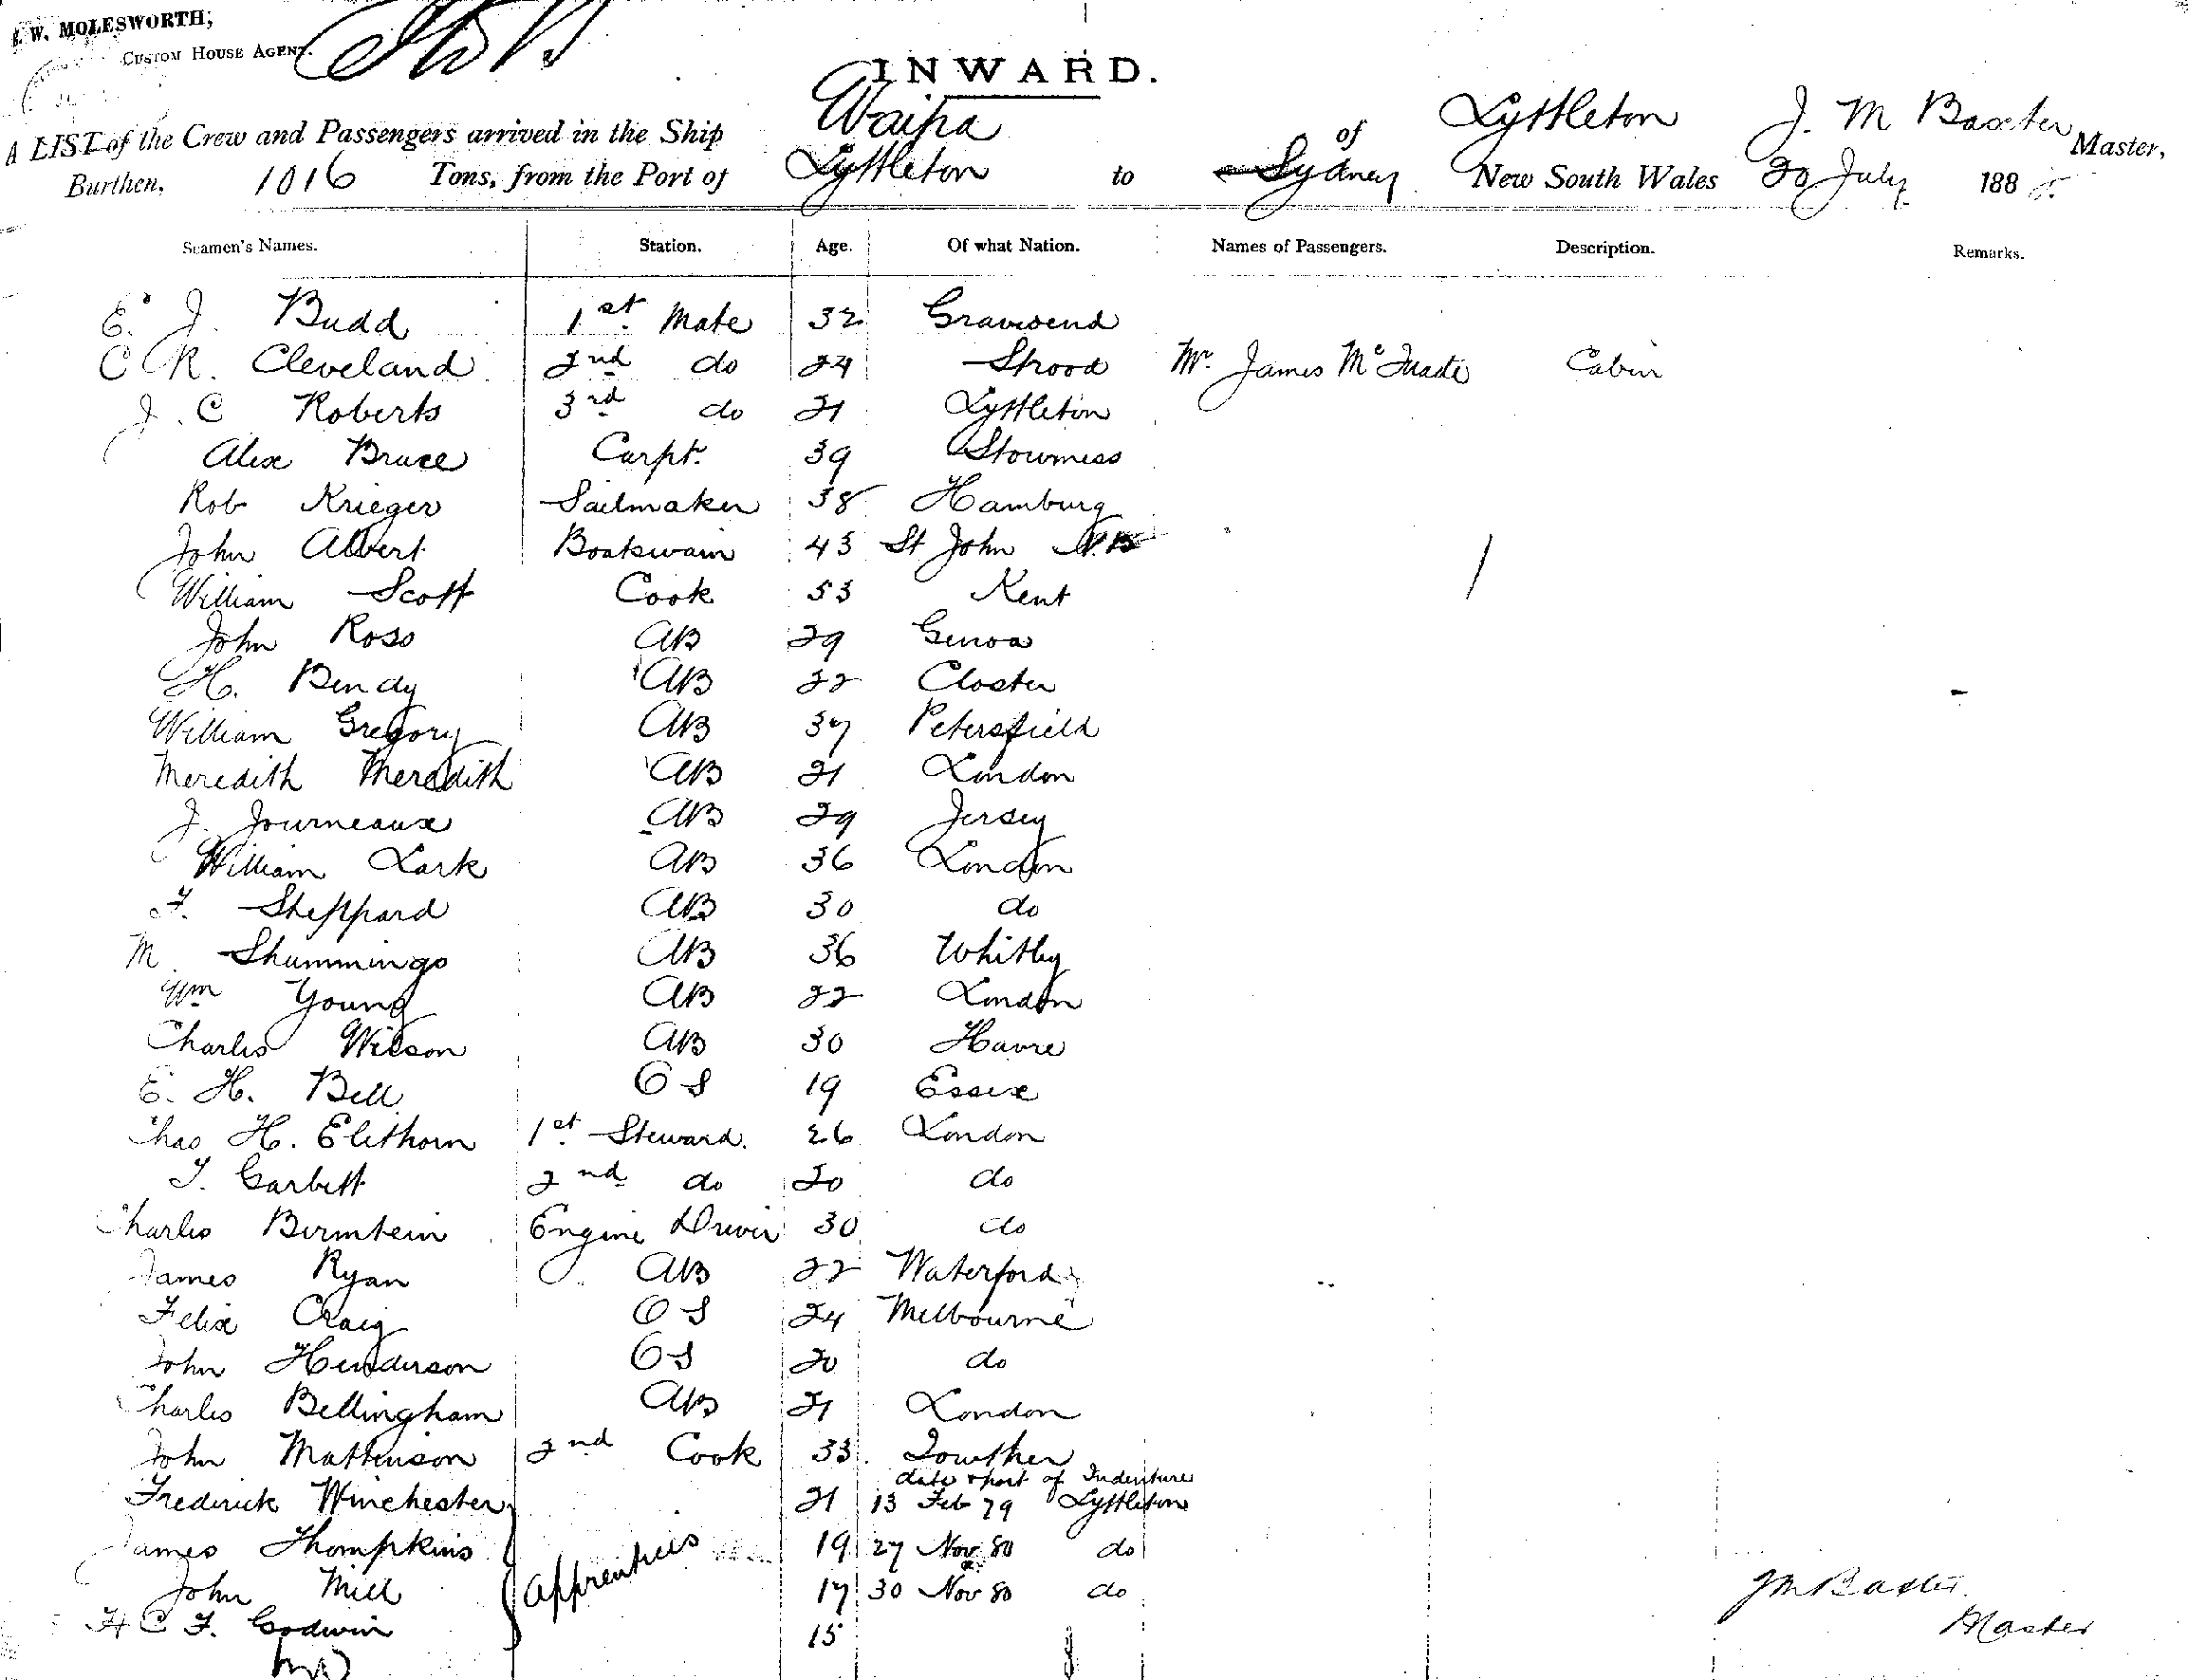 W. MOLESWORTH,
CUSTOM HOUSE AGENT.
INWARD.
A LIST of the Crew and Passengers arrived in the Ship Waipa of Lyttleton J. M Baxter Master,
Burthen, 1016 Tons, from the Port of Lyttleton to Sydney New South Wales 20 July 188
Seamen's Names. Station. Age. Of what Nation. Names of Passengers. Description. Remarks.
E. J. Budd 1st Mate 32 Gravesend
C R. Cleveland 2nd do 24 Strood Mr. James McQuade Cabin
J. C Roberts 3rd do 21 Lyttleton
Alex Bruce Carpt. 39
Rob Krieger Sailmaker 38 Hamburg
John Albert Boatswain 43 St John N.B
William Scott Cook 53 Kent
John Ross AB 29 Genoa
H. Bendy AB 22 Closter
William Gregory AB 37 Petersfield
Meredith Meredith AB 21 London
J. Journeaux AB 29 Jersey
William Lark AB 36 London
F. Sheppard AB 30 do
M Shummings AB 36 Whitby
Wm Young AB 22 London
Charles Wilson AB 30 Havre
E. H. Bell OS 19 Essex
Chas H. Elithorn 1st Steward. 26 London
T. Garbett 2nd do 20 do
Charles Bernstein Engine Driver 30 do
James Ryan AB 22 Waterford
Felix Craig OS 24 Melbourne
John Henderson OS 20 do
Charles Bellingham AB 21 London
John Mattenson 2nd Cook 33 Lowther
date & port of Indenture
Frederick Winchester 21 13 Feb 79 Lyttleton
James Thompkins 19 27 Nov 80 do
Apprentices
John Mill 17 30 Nov 80 do
H C F. Godwin 15
J M Baxter.
Master